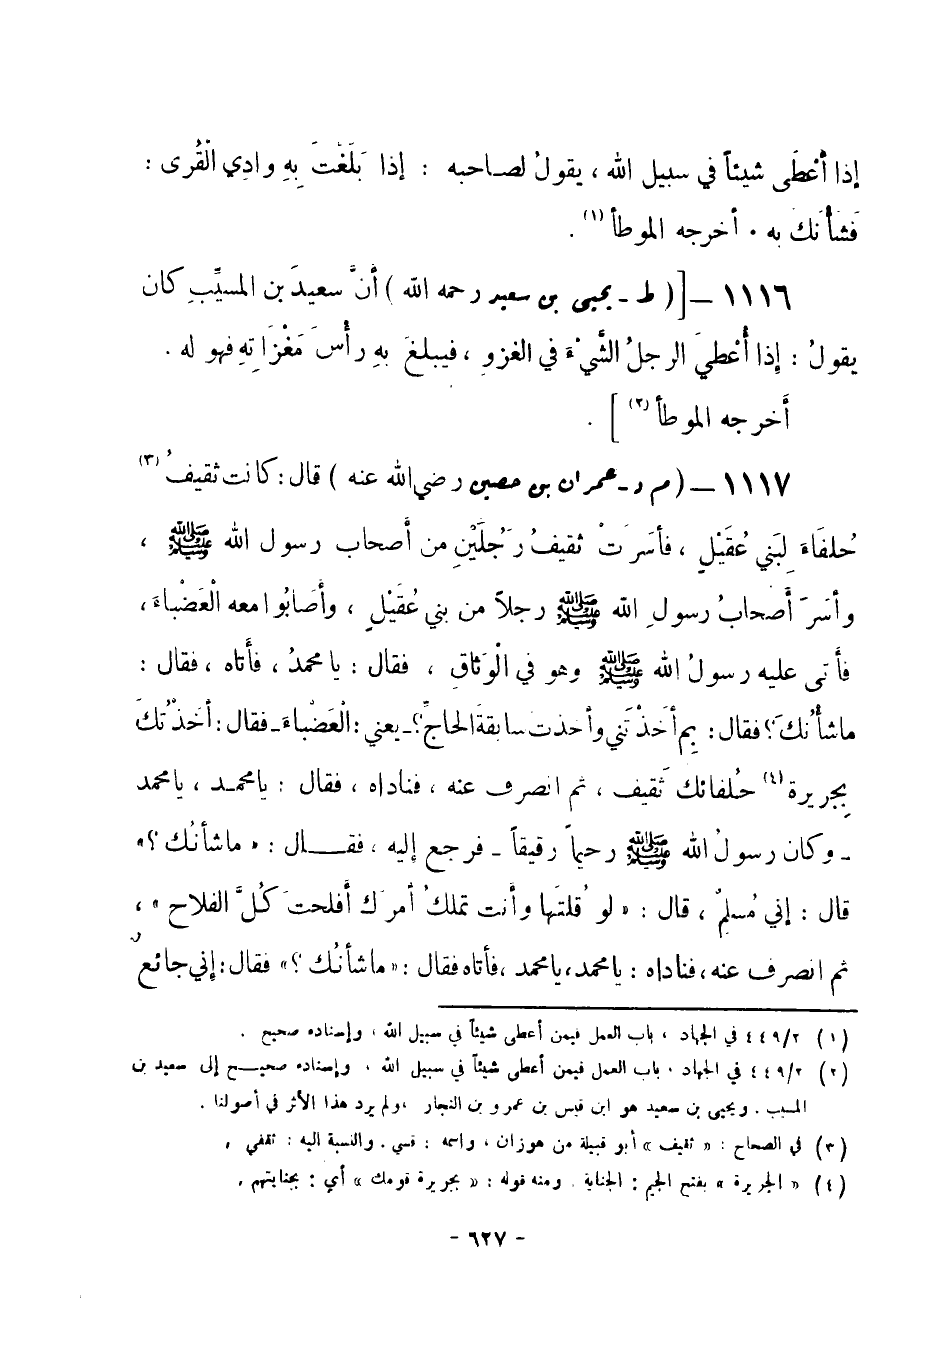 إذا أَعْطَى شيئاً في سبيل الله ، يقولُ لصاحبه : إذا بَلَغْتَ بِهِ وادِي الْقُرى :
فَشَأْنَكَ به . أخرجه الموطأ (١) .
١١١٦ – [( ط – يحيى بن سعيد رحمه الله ) أنَّ سعيدَ بن المسيِّبِ كان
يقولُ : إذا أُعْطِيَ الرجلُ الشَّيْءَ في الغزو ، فيبلغَ به رأْسَ مَغْزَاتِهِ فهو له .
أخرجه الموطأ (٢) ] .
١١١٧ – ( م د – عمران بن حصين رضي الله عنه ) قال : كانت ثقيفُ (٣)
حُلفَاءَ لِبَني عُقَيْلٍ ، فأسَرَتْ ثقيفُ رَجُلَيْنِ من أصحاب رسول الله ﷺ ،
وأسَرَ أَصحابُ رسولِ الله ﷺ رجلاً من بني عُقَيْلٍ ، وأصَابُوا معه الْعَضْباءَ ،
فأَتى عليه رسولُ الله ﷺ وهو في الْوَثاقِ ، فقال : يا محمدُ ، فأتاه ، فقال :
ما شأْنُكَ ؟ فقال : بِم أَخَذْتَني وأخذتَ سابقةَ الحاجِّ ؟ – يعني : الْعَضْباءَ – فقال : أخَذْتُكَ
بِجريرة (٤) حُلفائكَ ثَقيف ، ثم انصرف عنه ، فناداه ، فقال : يا محمد ، يا محمد
– وكان رسولُ الله ﷺ رحيماً رقيقاً – فرجع إليه ، فقال : « ما شأنُك ؟ »
قال : إني مُسلمٌ ، قال : « لو قلتَها وأنت تملكُ أمرَك أفلحتَ كُلَّ الفلاح » ،
ثم انصرف عنه ، فناداه : يا محمد ، يا محمد ، فأتاه فقال : « ما شأنُك ؟ » فقال : إني جائعٌ
(١) ٤٤٩/٢ في الجهاد ، باب العمل فيمن أعطى شيئاً في سبيل الله ، وإسناده صحيح .
(٢) ٤٤٩/٢ في الجهاد ، باب العمل فيمن أعطى شيئاً في سبيل الله ، وإسناده صحيح إلى سعيد بن
المسيب . ويحيى بن سعيد هو ابن قيس بن عمرو بن النجار ، ولم يرد هذا الأثر في أصولنا .
(٣) في الصحاح : « ثقيف » أبو قبيلة من هوزان ، واسمه : قسي . والنسبة اليه : ثقفي .
(٤) « الجريرة » بفتح الجيم : الجناية . ومنه قوله : « بجريرة قومك » أي : بجنايتهم .
- ٦٢٧ -